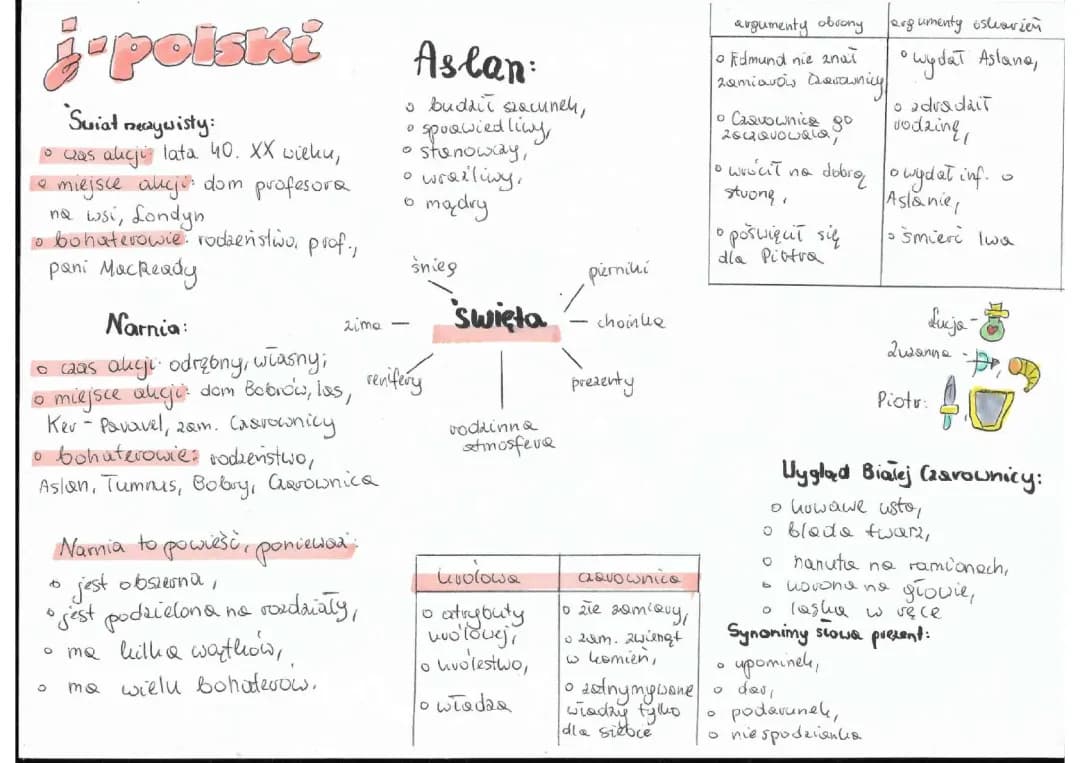 j-polski
Świat rzeczywisty:
o czas akcji: lata 40. XX wieku,
o miejsce akcji: dom profesora
na wsi, Londyn
o bohaterowie: rodzeństwo, prof.,
pani MacReady
Narnia:
o czas akcji: odrębny, własny;
o miejsce akcji: dom Bobrów, las,
Ker-Paravel, zam. Czarownicy
o bohaterowie: rodzeństwo,
Aslan, Tumnus, Bobry, Czarownica
Narnia to powieść, ponieważ:
o jest obszerna,
o jest podzielona na rozdziały,
o ma kilka wątków,
o ma wielu bohaterów.
Aslan:
o budził szacunek,
o sprawiedliwy,
o stanowczy,
o wrażliwy,
o mądry
święta
śnieg
pierniki
zima
choinka
renifery
prezenty
rodzinna
atmosfera
królowa
o atrybuty
królowej,
o królestwo,
o władza
czarownica
o złe zamiary,
o zam. zwierząt
w kamień,
o zatrzymywanie
władzy tylko
dla siebie
argumenty obrony
o Edmund nie znał
zamiarów Czarownicy
o Czarownica go
zaczarowała,
o wrócił na dobrą
stronę,
o poświęcił się
dla Piotra
argumenty oskarżeń
o wydał Aslana,
o zdradził
rodzinę,
o wydał inf. o
Aslanie,
o śmierć lwa
Łucja -
Zuzanna -
Piotr:
Wygląd Białej Czarownicy:
o krwawe usta,
o blada twarz,
o narzuta na ramionach,
o korona na głowie,
o laska w ręce
Synonimy słowa prezent:
o upominek,
o dar,
o podarunek,
o niespodzianka